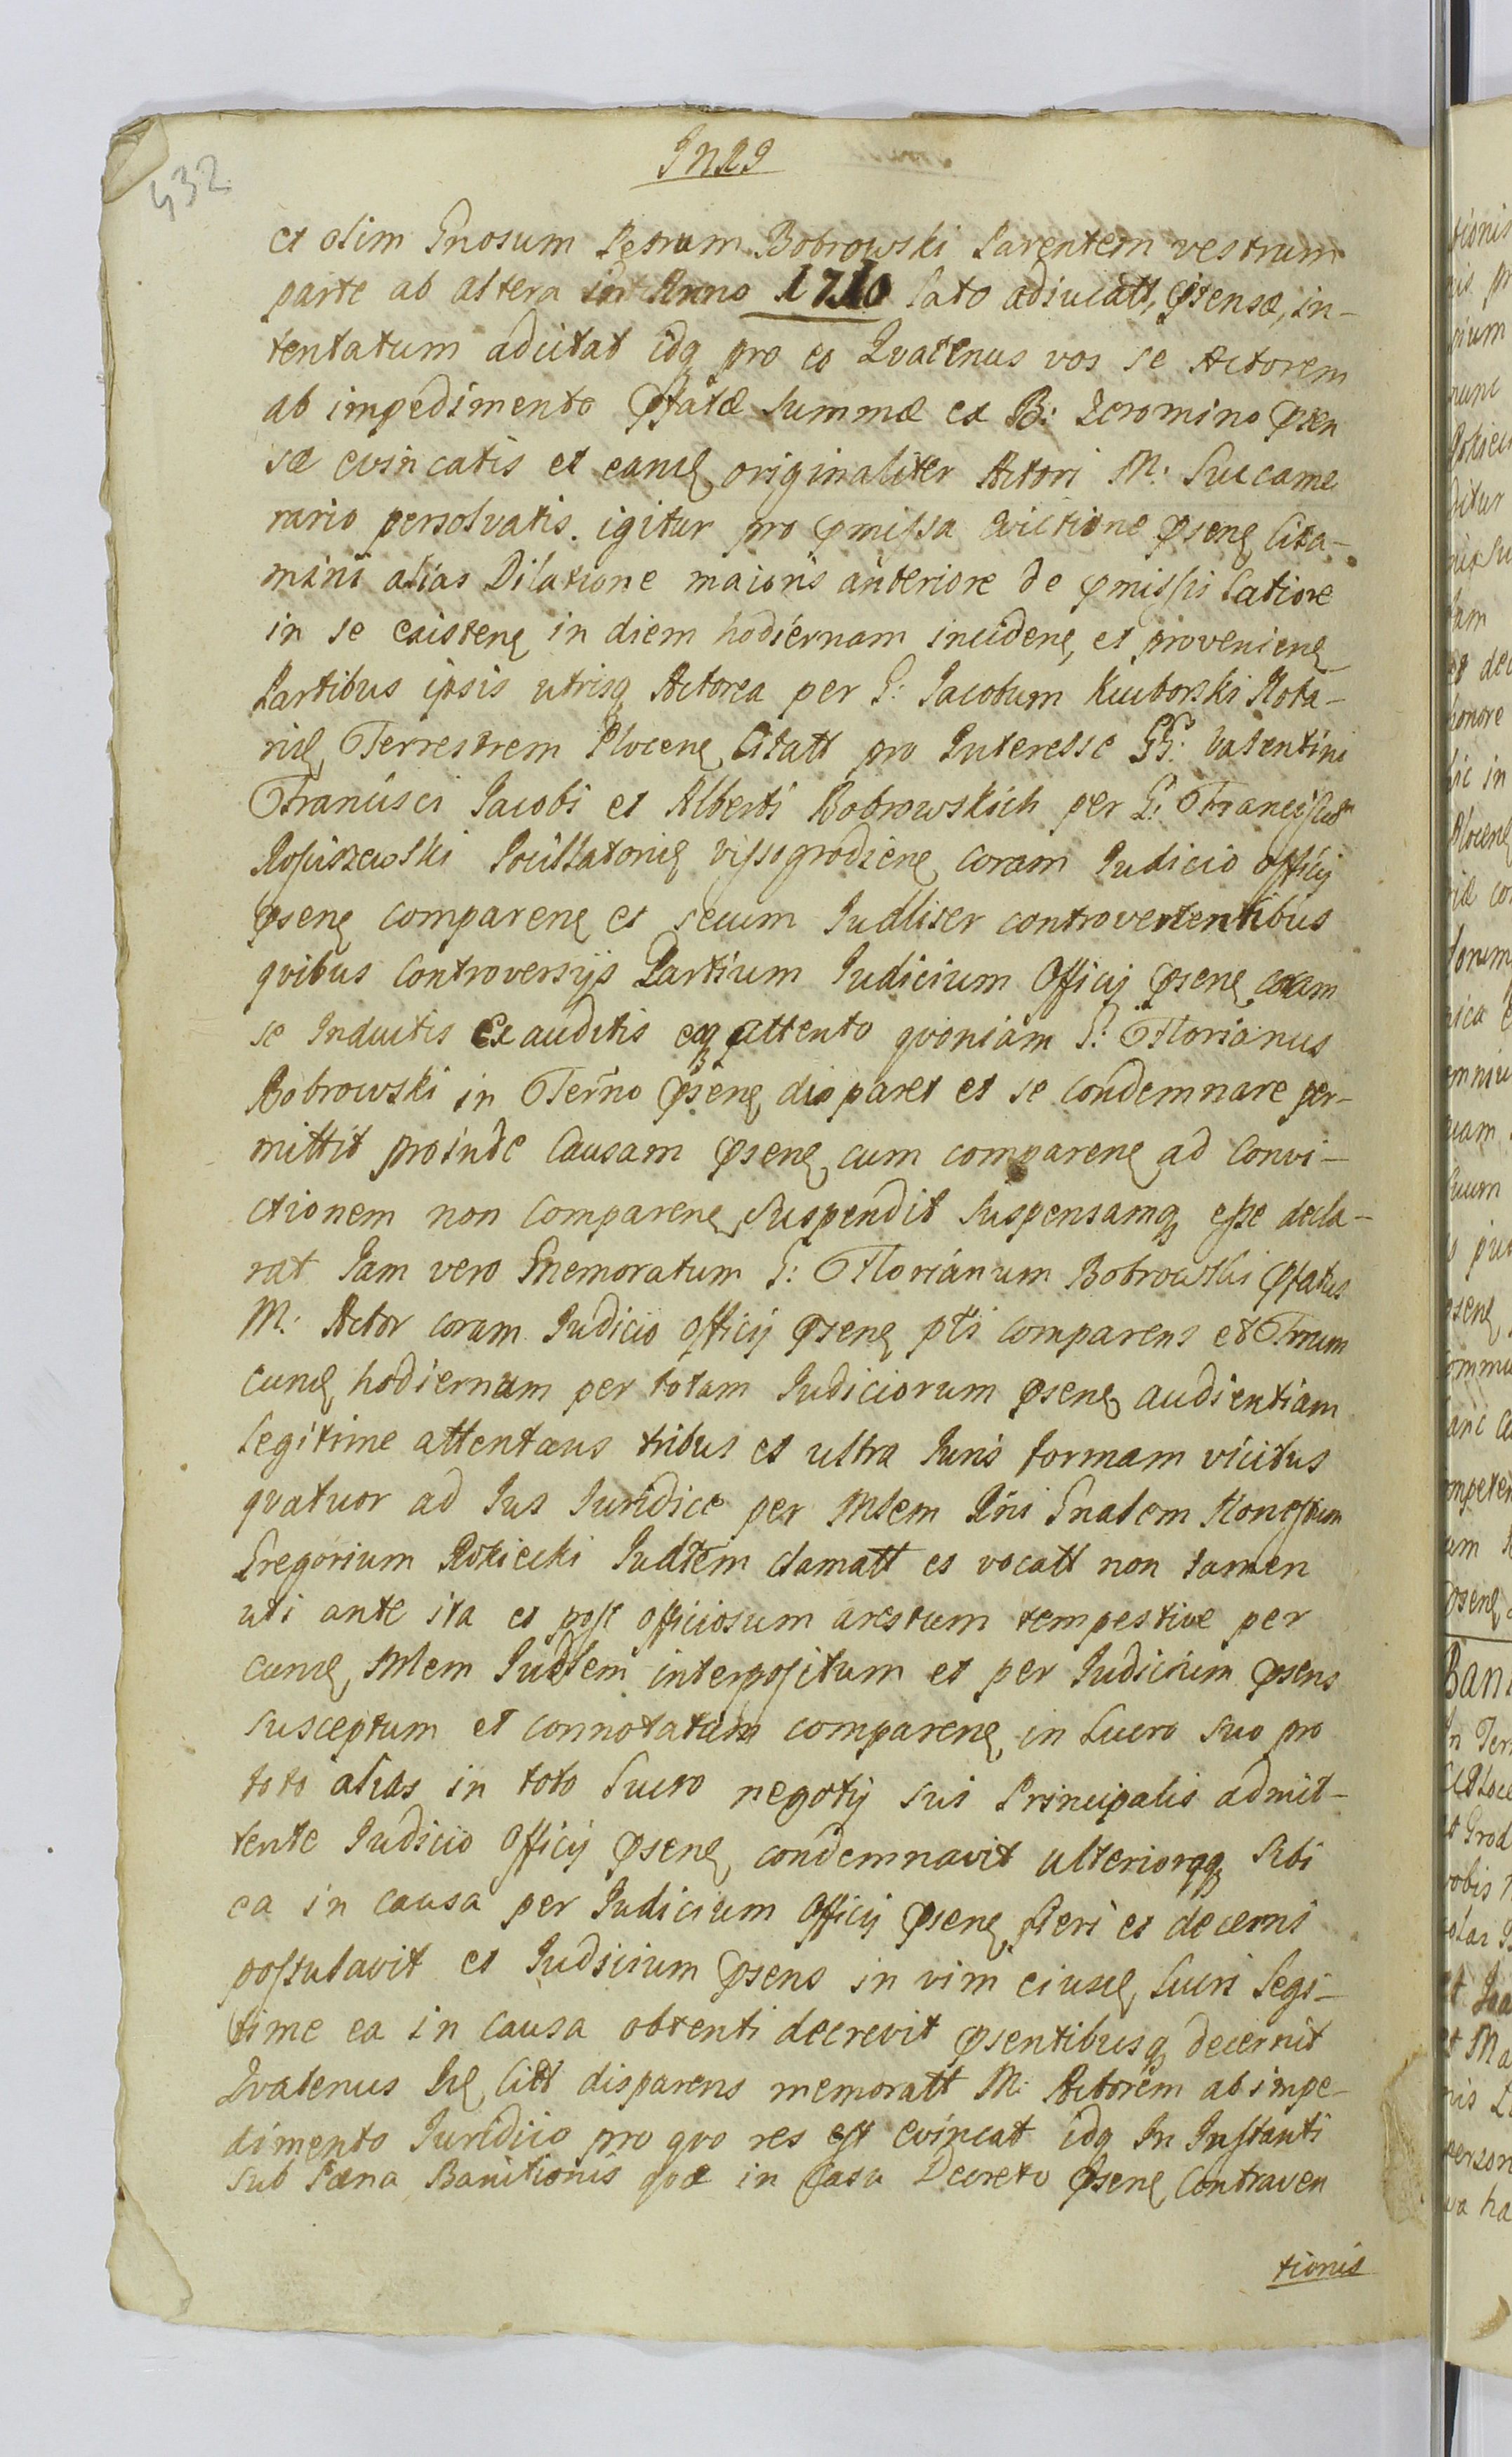 432
et olim Gnosum Petrum Bobrowski Parentem vestrum
parte ab altera Anno 1710 lato adiucatt, psensæ, in-
tentatum aducitat idq pro eo Qvatenus vos se Actorem
ab impedimento pfatæ summæ et B: Zeromino psen
sæ evincatis et eande originaliter Actori M: Succame
rario persolvatis. igitur pro pmissa evictione psene Cita-
mini alias Dilatione maioris anteriore de pmissis latiore
in se existene in diem hodiernam incidene, et proveniene
Partibus ipsis utrisq Actorea per G: Jacobum Kuiborski Nota-
riũ Terrestrem Plocene Citatt pro Interesse GG: Valentini
Francisci Jacobi et Alberti Bobrowskich per G: Franciscum
Rosciszewski Pocillatoriũ vissogrodiene coram Judicio officij
psene comparene et secum Judliter controvertentibus
qvibus Controversijs Partium Judicium Officij psene coram
se Inductis Exauditis eoq attento qvoniam G: Florianus
Bobrowski in Termno psene disparet et se condemnare per-
mittit proinde Causam psene cum comparene ad Convi-
ctionem non Comparene suspendit suspensamq esse decla-
rat Jam vero Ememoratum G: Florianum Bobrowski pfatus
M: Actor coram Judicio officij psene pti comparens et Trnum
eunde hodiernum per totam Judiciorum psene audientiam
legitime attentans tribus et ultra Juris formam vicibus
qvatuor ad Jus Juridice per Mlem Rni Gnalem Honestum
Gregorium Rokicki Judlem clamatt et vocatt non tamen
uti ante ita et post officiosum arestum tempestive per
eunde Mlem Judlem interpositum et per Judicium psens
susceptum et connotatum comparene, in Lucro suo pro
toto alias in toto Lucro negotij sui Principalis admit-
tente Judicio Officij psene condemnavit ulteriorqq sibi
ea in causa per Judicium Officij psene fieri et decerni
postulavit et Judicium psens in vim eiusde Lucri legi-
time ea in Causa obtenti decrevit psentibusq decernit
Qvatenus Citt disparens memoratt M: Actorem ab impe-
dimento Juridico pro qvo res est evincat idq In Instanti
sub Pæna Banitionis qvæ in Casu Decreto psene Contraven
tionis